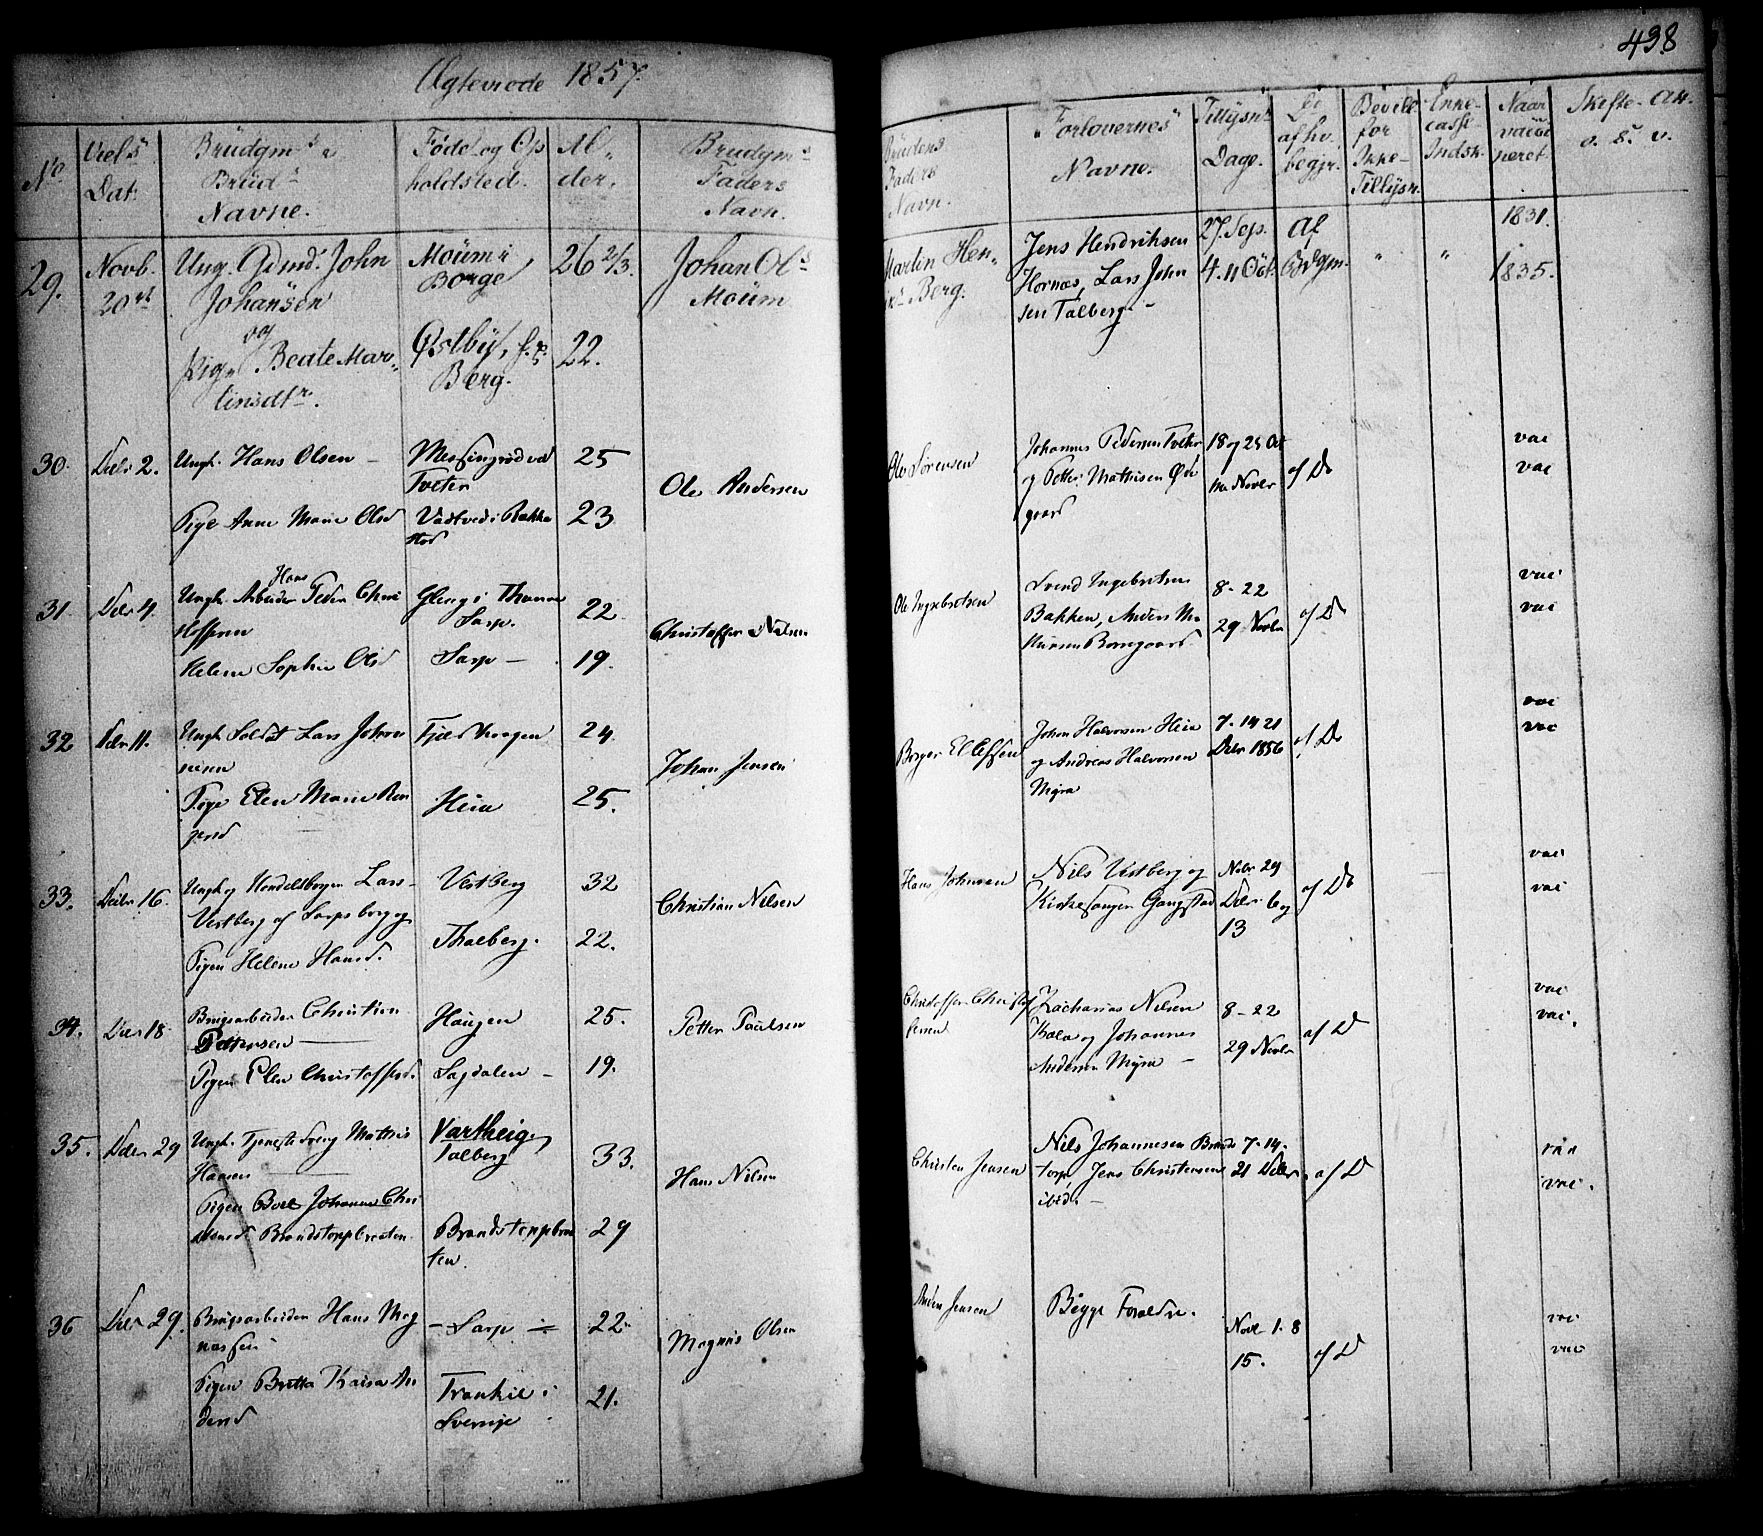 498
Ægteviede 1857.
No.
Viels
Dat.
Brüdgms &
Brüds
Navne.
Føde- og Op
holdsted.
Al-
der.
Brudgms
Faders
Navn.
Brüdens
Faders
Navn.
Forlovernes
Navne.
Tillysn.
Dage.
afhv.
begjr.
Bevill.
for
Ikke-
Tillysn.
Enke-
casse-
Indsk.
Naar
vacci
neret
Skifte- Att.
29.
Novb.
20de
Ung. Gdmd. John
Johansen
og
Pige Beate Mar-
tinsdtr.
Moüm i
Borge
Østby, f. p.
Berg.
26 2/3.
22.
Johan Ols
Moüm
Martin Hen-
Berg.
Jens Hendriksen
Hornæs, Lars John
sen Talberg
27. Sep.
4. 11 Oct.
Af
Brgm.
"
"
1831.
1835.
30.
Decbr 2.
Ungk. Hans Olsen
Pige Anne Marie Olsd
Messingrød ved
Tveten
Vestved i Rakke
stad
25
23
Ole Andersen
Ole Sørensen
Johannes Pedersen Tveter
og Petter Mathisen Øde
gaard
18 og 25 Oct
1ste Novbr
af Do
vac
vac
31.
Decbr 4.
Hans
Ungk. Arbeider Peder Chri
stoffersen
Helene Sophie Olsd
Gleng i Thune
Sarp.
Sarp
22.
19.
Christoffer Nilsen
Ole Ingebretsen
Svend Ingebretsen
Bakken, Anders Ma
thisen Borregaard
8- 22
29 Novbr
af Do
vac
vac
32
Decbr 11.
Ungk. Soldat Lars Johan
nesen
Pige Elen Marie Bør
gersd
Fjeldskogen
Heia
24.
25.
Johan Jensen
Børger Ellefsen
Johan Halvorsen Heia
og Andreas Halvorsen
Myra
7. 14 21
Decbr 1856
af Do
vac
vac
33.
Decbr 16.
Ungk og Handelsborger Lars
Vestberg af Sarpsborg og
Pigen Helene Hansd.
Vestberg
Thalberg.
32
22.
Christian Nilsen
Hans Johnsen
Nils Vestberg og
Kirkesanger Gangstad
Novbr 29
Decbr 6 og
13
af Do
vac
vac
34.
Decbr 18
Brugsarbeider Christian
Pettersen
Pigen Elen Christoffersd.
Haugen
Sagdalen
25.
19.
Petter Paulsen
Christoffer Christof
fersen
Zacharias Nilsen
Bala og Johannes
Andersen Myra
8- 22
29 Novbr
af D
vac
vac.
35.
Decbr 29
Ungk. Tjenestedreng Mathis
Hansen
Pigen Boel Johanne Chri
stensd. Brandstorpbraaten
Vartheig,
Talberg
Brandstorpbraa
ten.
33.
29
Hans Nilsen
Christen Jensen
Nils Johannesen Brands
torp, Jens Christensen
ibid.
7- 14-
21 Decbr.
af D
vac
vac.
36
Decbr 29.
Brugsarbeider Hans Mag
nussen
Pigen Britta Kaisa An
dersd
Sarp
Frankil i
Sverige
22
21.
Magnus Olsen
Anders Jensen
Begge Forældre.
Novbr 1. 8
15.
af D
vac
vac